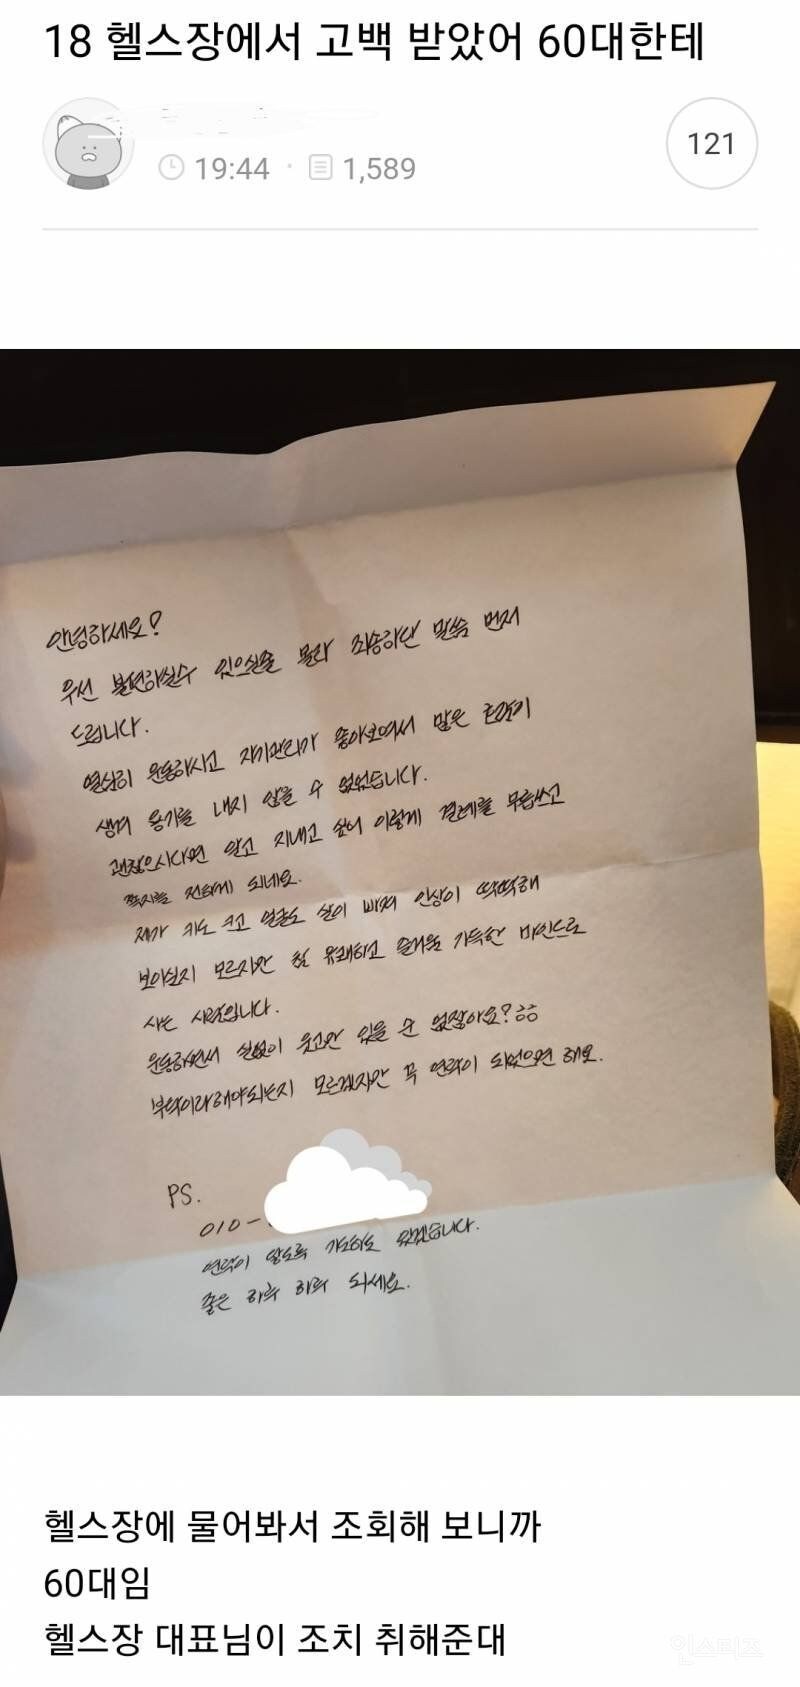 18 헬스장에서 고백 받았어 60대한테
19:44 · 1,589
121
안녕하세요?
우선 불편하실수 있으실줄 몰라 죄송하단 말씀 먼저
드립니다.
열심히 운동하시고 자기관리가 좋아보여서 말은
생겨 용기를 내지 않을 수 없었습니다.
괜찮으시다면 알고 지내고 싶어 이렇게 결례를 무릅쓰고
쪽지를 전하게 되네요.
제가 키도 크고 얼굴도 살이 빠져 인상이 딱딱해
보이실지 모르지만 참 유쾌하고 즐거움 가득한 마인드로
사는 사람입니다.
운동하면서 실없이 웃고만 있을 순 없잖아요? ㅎㅎ
부탁이라해야되는지 모르겠지만 꼭 연락이 되었으면 해요.
PS.
010-
연락이 않도록 기도하고 있겠습니다.
좋은 하루 하루 되세요.
헬스장에 물어봐서 조회해 보니까
60대임
헬스장 대표님이 조치 취해준대
인스티즈